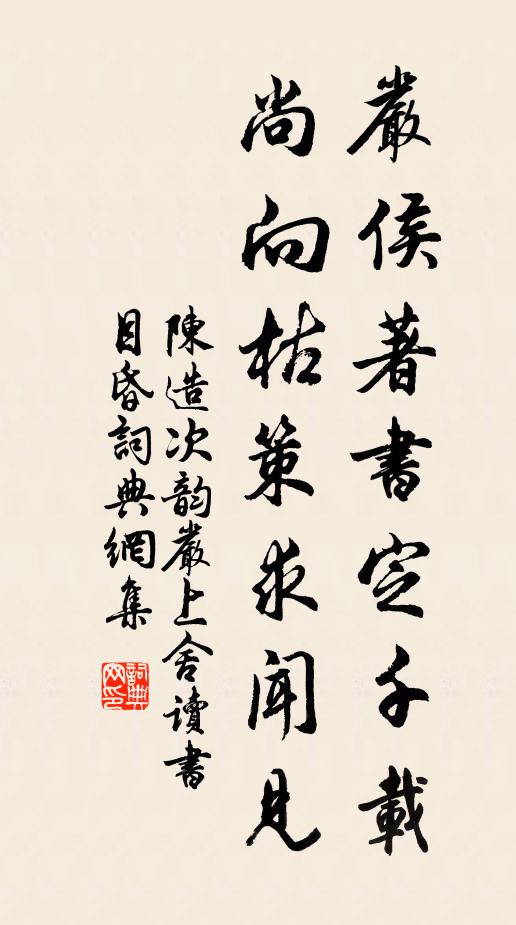 嚴侯著書定千載
尚向枯策求聞見
陳造次韵嚴上舍讀書
目昏詞典網集
詞典
网印